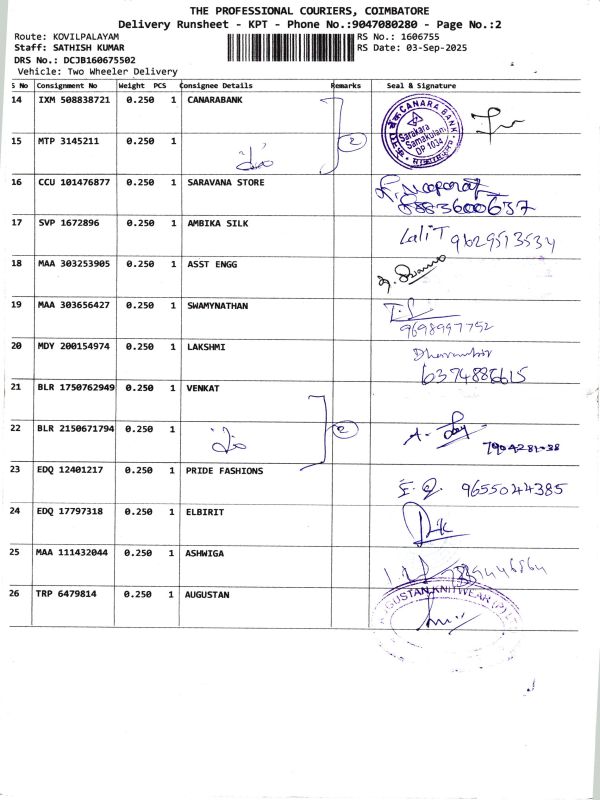 THE PROFESSIONAL COURIERS, COIMBATORE
Delivery Runsheet - KPT - Phone No.:9047080280 - Page No.:2
Route: KOVILPALAYAM RS No.: 1606755
Staff: SATHISH KUMAR RS Date: 03-Sep-2025
DRS No.: DCJB160675502
Vehicle: Two Wheeler Delivery
S No Consignment No Weight PCS Consignee Details Remarks Seal & Signature
14 IXM 508838721 0.250 1 CANARABANK
CANARA BANK
Sarakara
Samakulam
DP 1034
15 MTP 3145211 0.250 1
2
16 CCU 101476877 0.250 1 SARAVANA STORE
8883600637
17 SVP 1672896 0.250 1 AMBIKA SILK
LaliT 9629513534
18 MAA 303253905 0.250 1 ASST ENGG
19 MAA 303656427 0.250 1 SWAMYNATHAN
9698997752
20 MDY 200154974 0.250 1 LAKSHMI
6374886615
21 BLR 1750762949 0.250 1 VENKAT
22 BLR 2150671794 0.250 1
2
23 EDQ 12401217 0.250 1 PRIDE FASHIONS
9655044385
24 EDQ 17797318 0.250 1 ELBIRIT
25 MAA 111432044 0.250 1 ASHWIGA
26 TRP 6479814 0.250 1 AUGUSTAN
AUGUSTAN KNITWEAR (P)